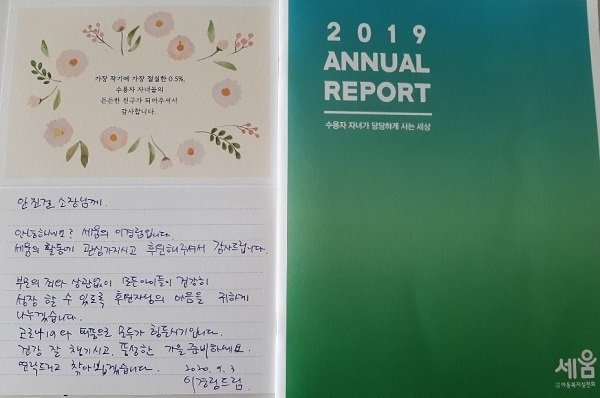 가장 작기에 가장 절실한 0.5%,
수용자 자녀들의
든든한 친구가 되어주셔서
감사합니다.
안진걸 소장님께.
안녕하세요? 세움의 이경림입니다.
세움의 활동에 관심가지시고 후원해주셔서 감사드립니다.
부모의 죄와 상관없이 모든아이들이 건강히
성장 할 수 있도록 후원자님의 마음을 귀하게
나누겠습니다.
코로나19와 태풍으로 모두가 힘든시기입니다.
건강 잘 챙기시고, 풍성한 가을 준비하세요.
연락드리고 찾아뵙겠습니다.
2020. 9. 3
이경림드림.
2019
ANNUAL
REPORT
수용자 자녀가 당당하게 사는 세상
세움
아동복지실천회